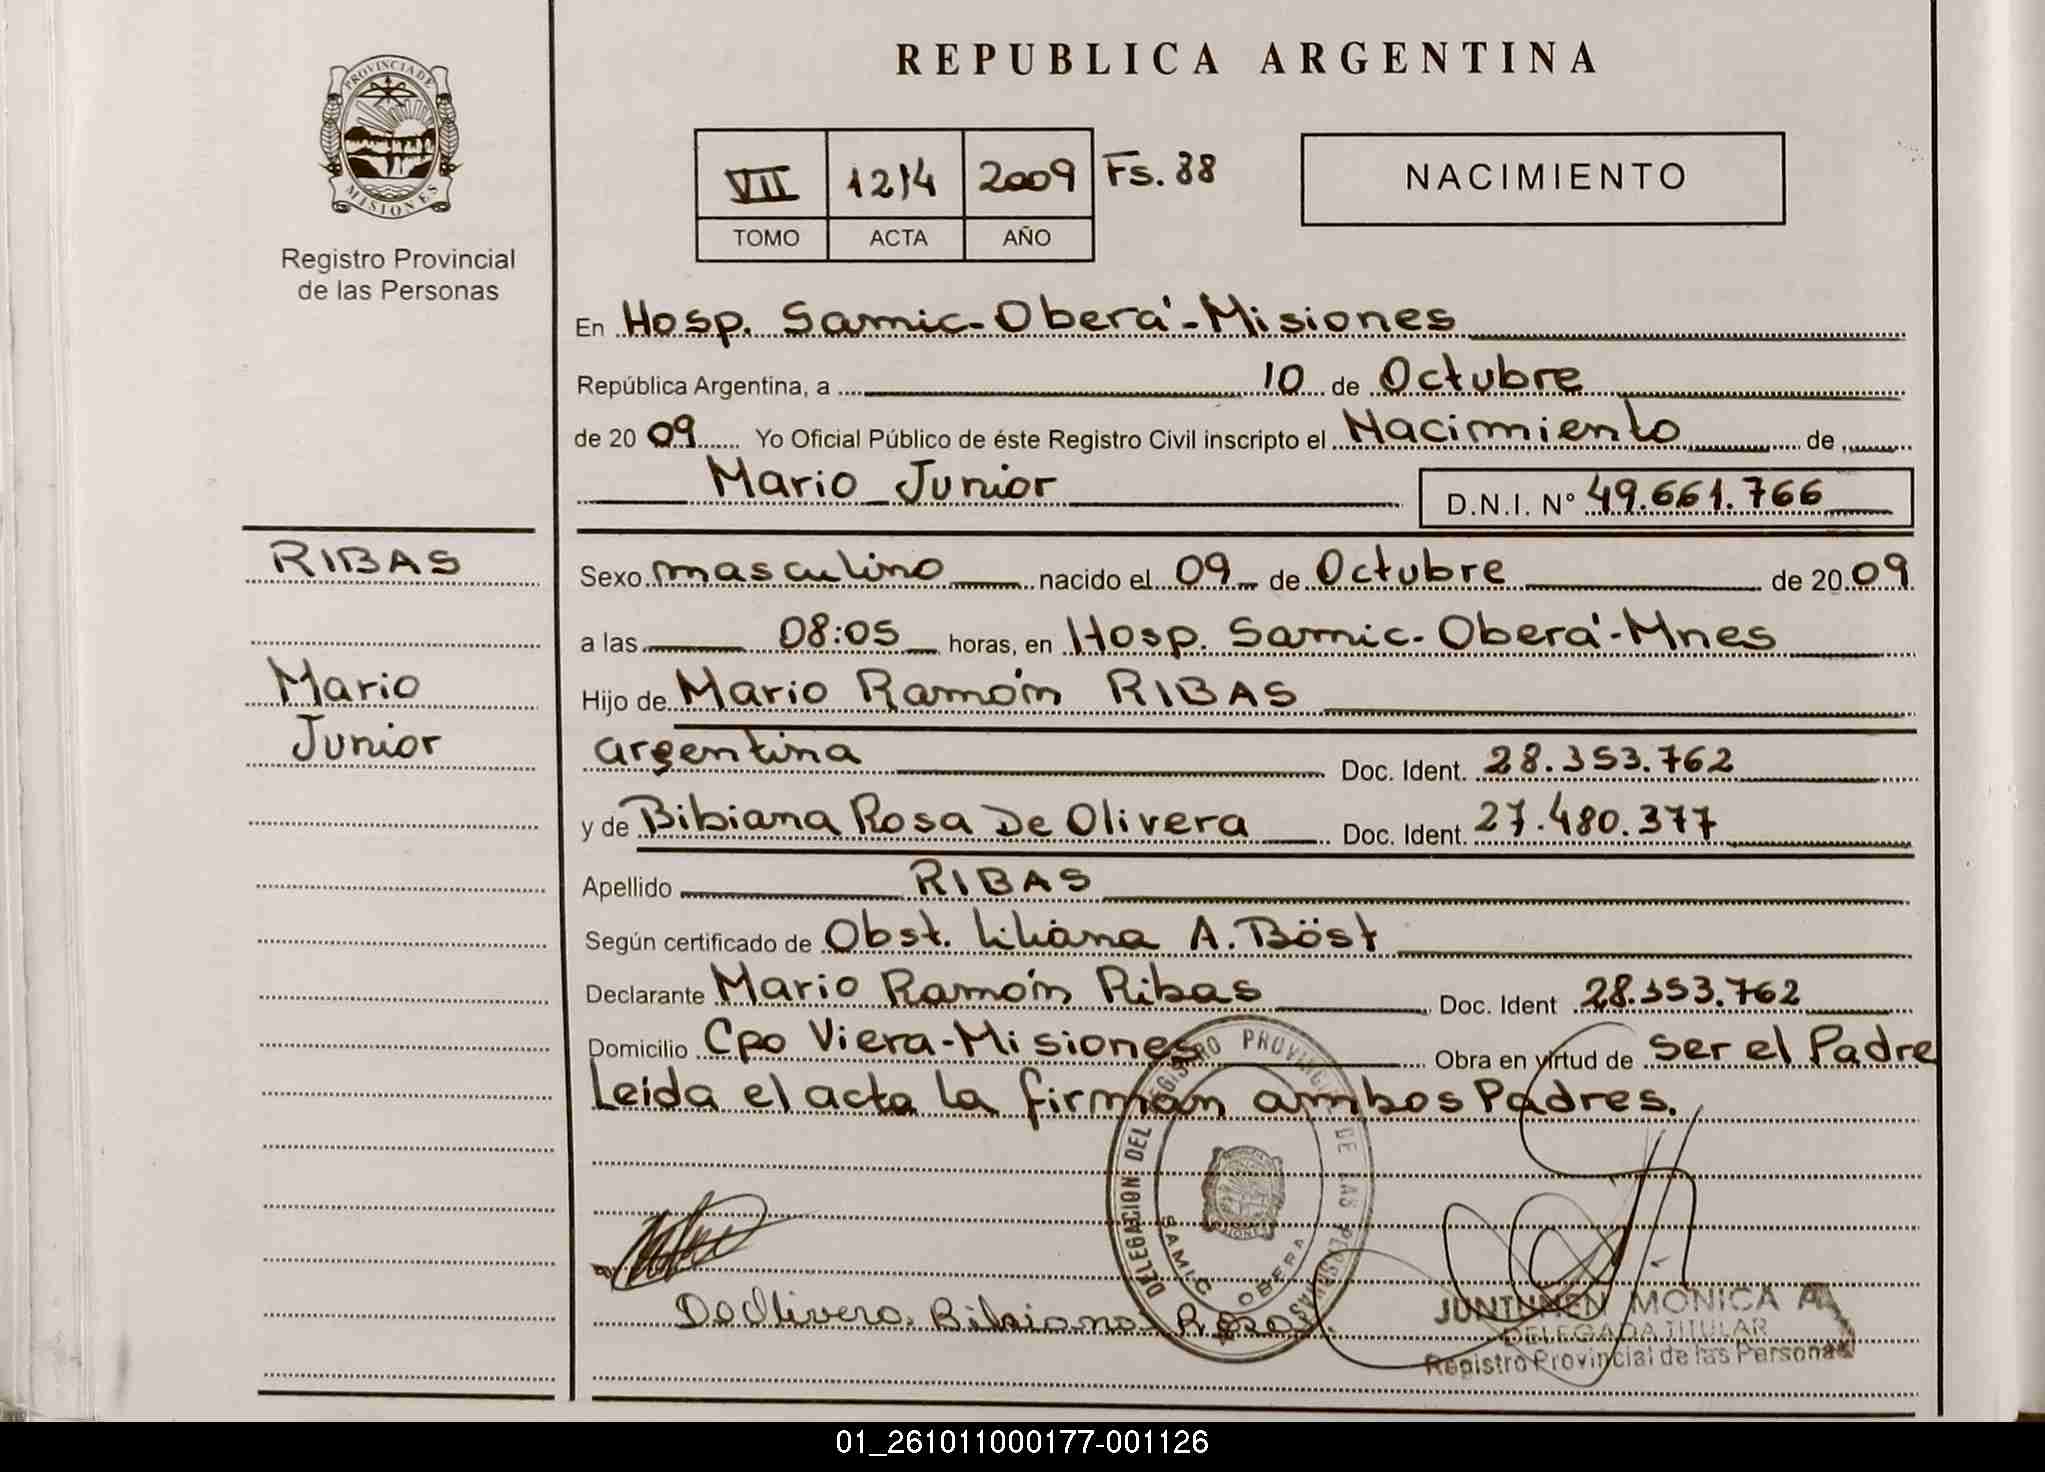 REPUBLICA ARGENTINA
PROVINCIA DE
MISIONES
Registro Provincial
de las Personas
VII 1214 2009 Fs. 38
TOMO ACTA AÑO
NACIMIENTO
En Hosp. Samic-Oberá-Misiones
República Argentina, a 10 de Octubre
de 2009 Yo Oficial Público de éste Registro Civil inscripto el Nacimiento de
Mario Junior D.N.I. N° 49.661.766
RIBAS
Mario
Junior
Sexo masculino nacido el 09 de Octubre de 2009
a las 08:05 horas, en Hosp. Samic-Oberá-Mnes
Hijo de Mario Ramón RIBAS
argentina Doc. Ident. 28.353.762
y de Bibiana Rosa De Olivera Doc. Ident. 27.480.377
Apellido RIBAS
Según certificado de Obst. Liliana A. Böst
Declarante Mario Ramón Ribas Doc. Ident 28.353.762
Domicilio Cpo Viera-Misiones Obra en virtud de ser el Padre
Leida el acta la firman ambos Padres.
DELEGACION DEL REGISTRO PROVINCIAL DE LAS PERSONAS
SAMIC OBERA
De Olivera Bibiana Rosa
JUNTUNEN MONICA A.
DELEGADA TITULAR
Registro Provincial de las Personas
01_261011000177-001126